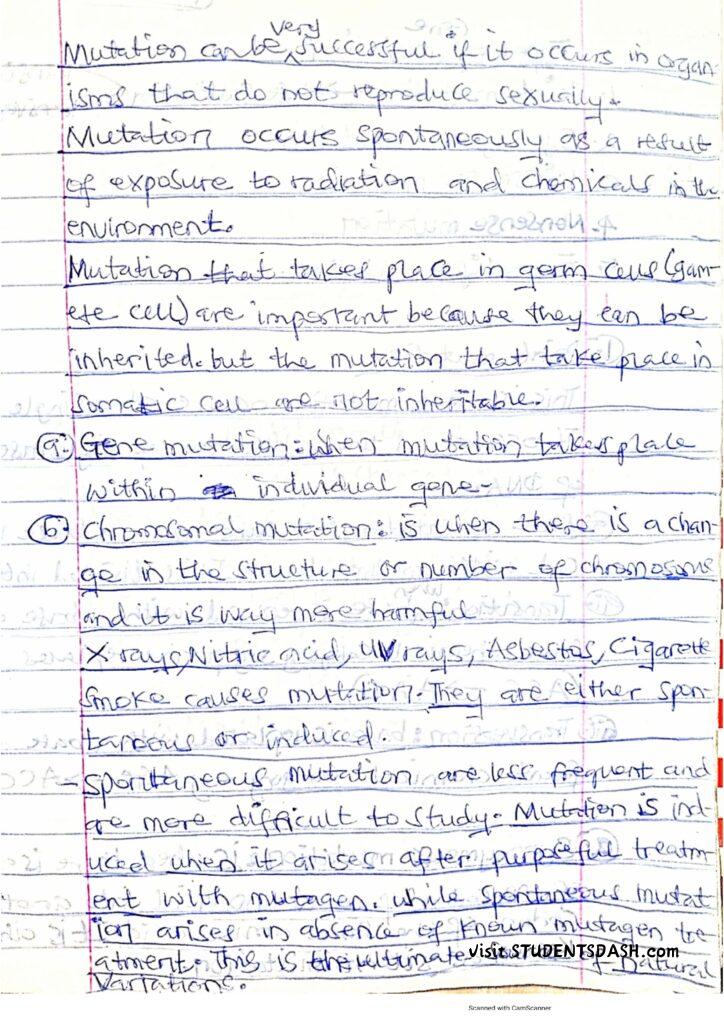 Mutation can be very successful if it occurs in organ-
isms that do not reproduce sexually.
Mutation occurs spontaneously as a result
of exposure to radiation and chemicals in the
environment.
Mutation that takes place in germ cells (gam-
ete cell) are important because they can be
inherited. but the mutation that take place in
somatic cell are not inheritable.
(a) Gene mutation: when mutation takes place
within individual gene-
(b) Chromosomal mutation: is when there is a chan-
ge in the structure or number of chromosoms
and it is way more harmful
X rays, Nitric acid, UV rays, Asbestos, Cigarette
Smoke causes mutation. They are either spon-
taneous or induced.
- Spontaneous mutation are less frequent and
are more difficult to study. Mutation is ind-
uced when it arises after purposeful treatm-
ent with mutagen. while spontaneous mutat
ion arises in absence of known mutagen tre
atment. This is the ultimate of Natural
Variations.
visit STUDENTSDASH.com
Scanned with CamScanner